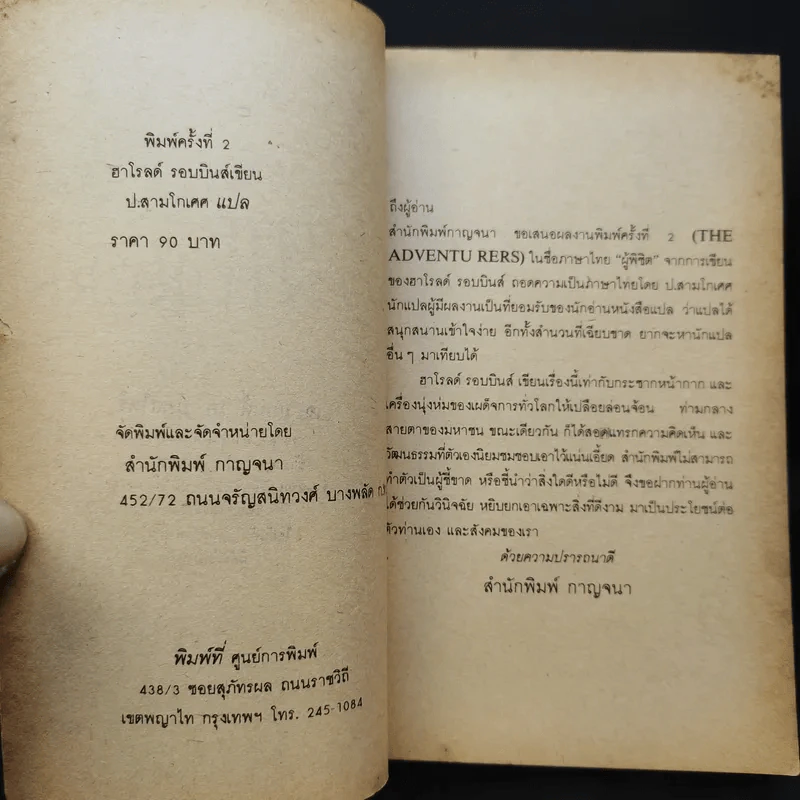 พิมพ์ครั้งที่ 2
ฮาโรลด์ รอบบินส์เขียน
ป.สามโกเศศ แปล
ราคา 90 บาท
จัดพิมพ์และจัดจำหน่ายโดย
สำนักพิมพ์ กาญจนา
452/72 ถนนจรัญสนิทวงศ์ บางพลัด
พิมพ์ที่ ศูนย์การพิมพ์
438/3 ซอยสุภัทรผล ถนนราชวิถี
เขตพญาไท กรุงเทพฯ โทร. 245-1084
ถึงผู้อ่าน
สำนักพิมพ์กาญจนา ขอเสนอผลงานพิมพ์ครั้งที่ 2 (THE
ADVENTU RERS) ในชื่อภาษาไทย "ผู้พิชิต" จากการเขียน
ของฮาโรลด์ รอบบินส์ ถอดความเป็นภาษาไทยโดย ป.สามโกเศศ
นักแปลผู้มีผลงานเป็นที่ยอมรับของนักอ่านหนังสือแปล ว่าแปลได้
สนุกสนานเข้าใจง่าย อีกทั้งสำนวนที่เฉียบขาด ยากจะหานักแปล
อื่น ๆ มาเทียบได้
ฮาโรลด์ รอบบินส์ เขียนเรื่องนี้เท่ากับกระชากหน้ากาก และ
เครื่องนุ่งห่มของเผด็จการทั่วโลกให้เปลือยล่อนจ้อน ท่ามกลาง
สายตาของมหาชน ขณะเดียวกัน ก็ได้สอดแทรกความคิดเห็น และ
วัฒนธรรมที่ตัวเองนิยมชมชอบเอาไว้แน่นเอี้ยด สำนักพิมพ์ไม่สามารถ
ทำตัวเป็นผู้ชี้ขาด หรือชี้นำว่าสิ่งใดดีหรือไม่ดี จึงขอฝากท่านผู้อ่าน
ได้ช่วยกันวินิจฉัย หยิบยกเอาเฉพาะสิ่งที่ดีงาม มาเป็นประโยชน์ต่อ
ตัวท่านเอง และสังคมของเรา
ด้วยความปรารถนาดี
สำนักพิมพ์ กาญจนา